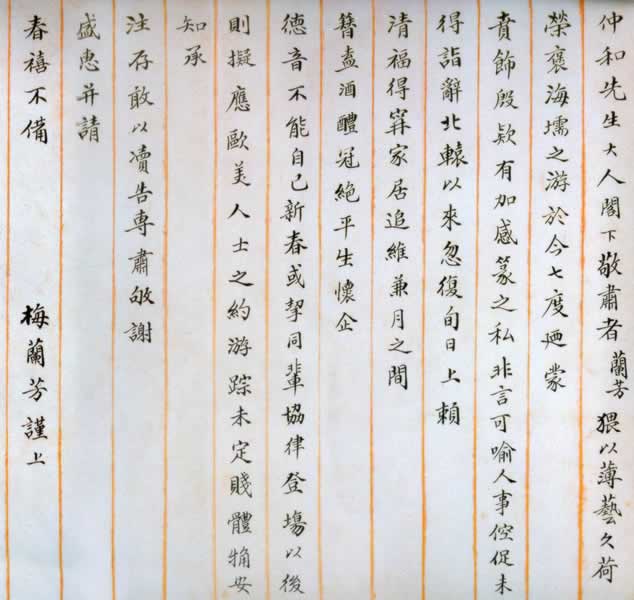 仲和先生大人閣下敬肅者蘭芳猥以薄藝久荷
榮褒海壖之游於今七度廼蒙
賁飾殷欵有加感篆之私非言可喻人事倥促未
得詣辭北轅以來忽復旬日上賴
清福得穽家居追維兼月之間
簪盍酒醴冠絕平生懷企
德音不能自已新春或挈同輩協律登塲以後
則擬應歐美人士之約游踪未定賤體觕安
知承
注存敢以瀆告專肅敬謝
盛惠并請
春禧不備 梅蘭芳謹上